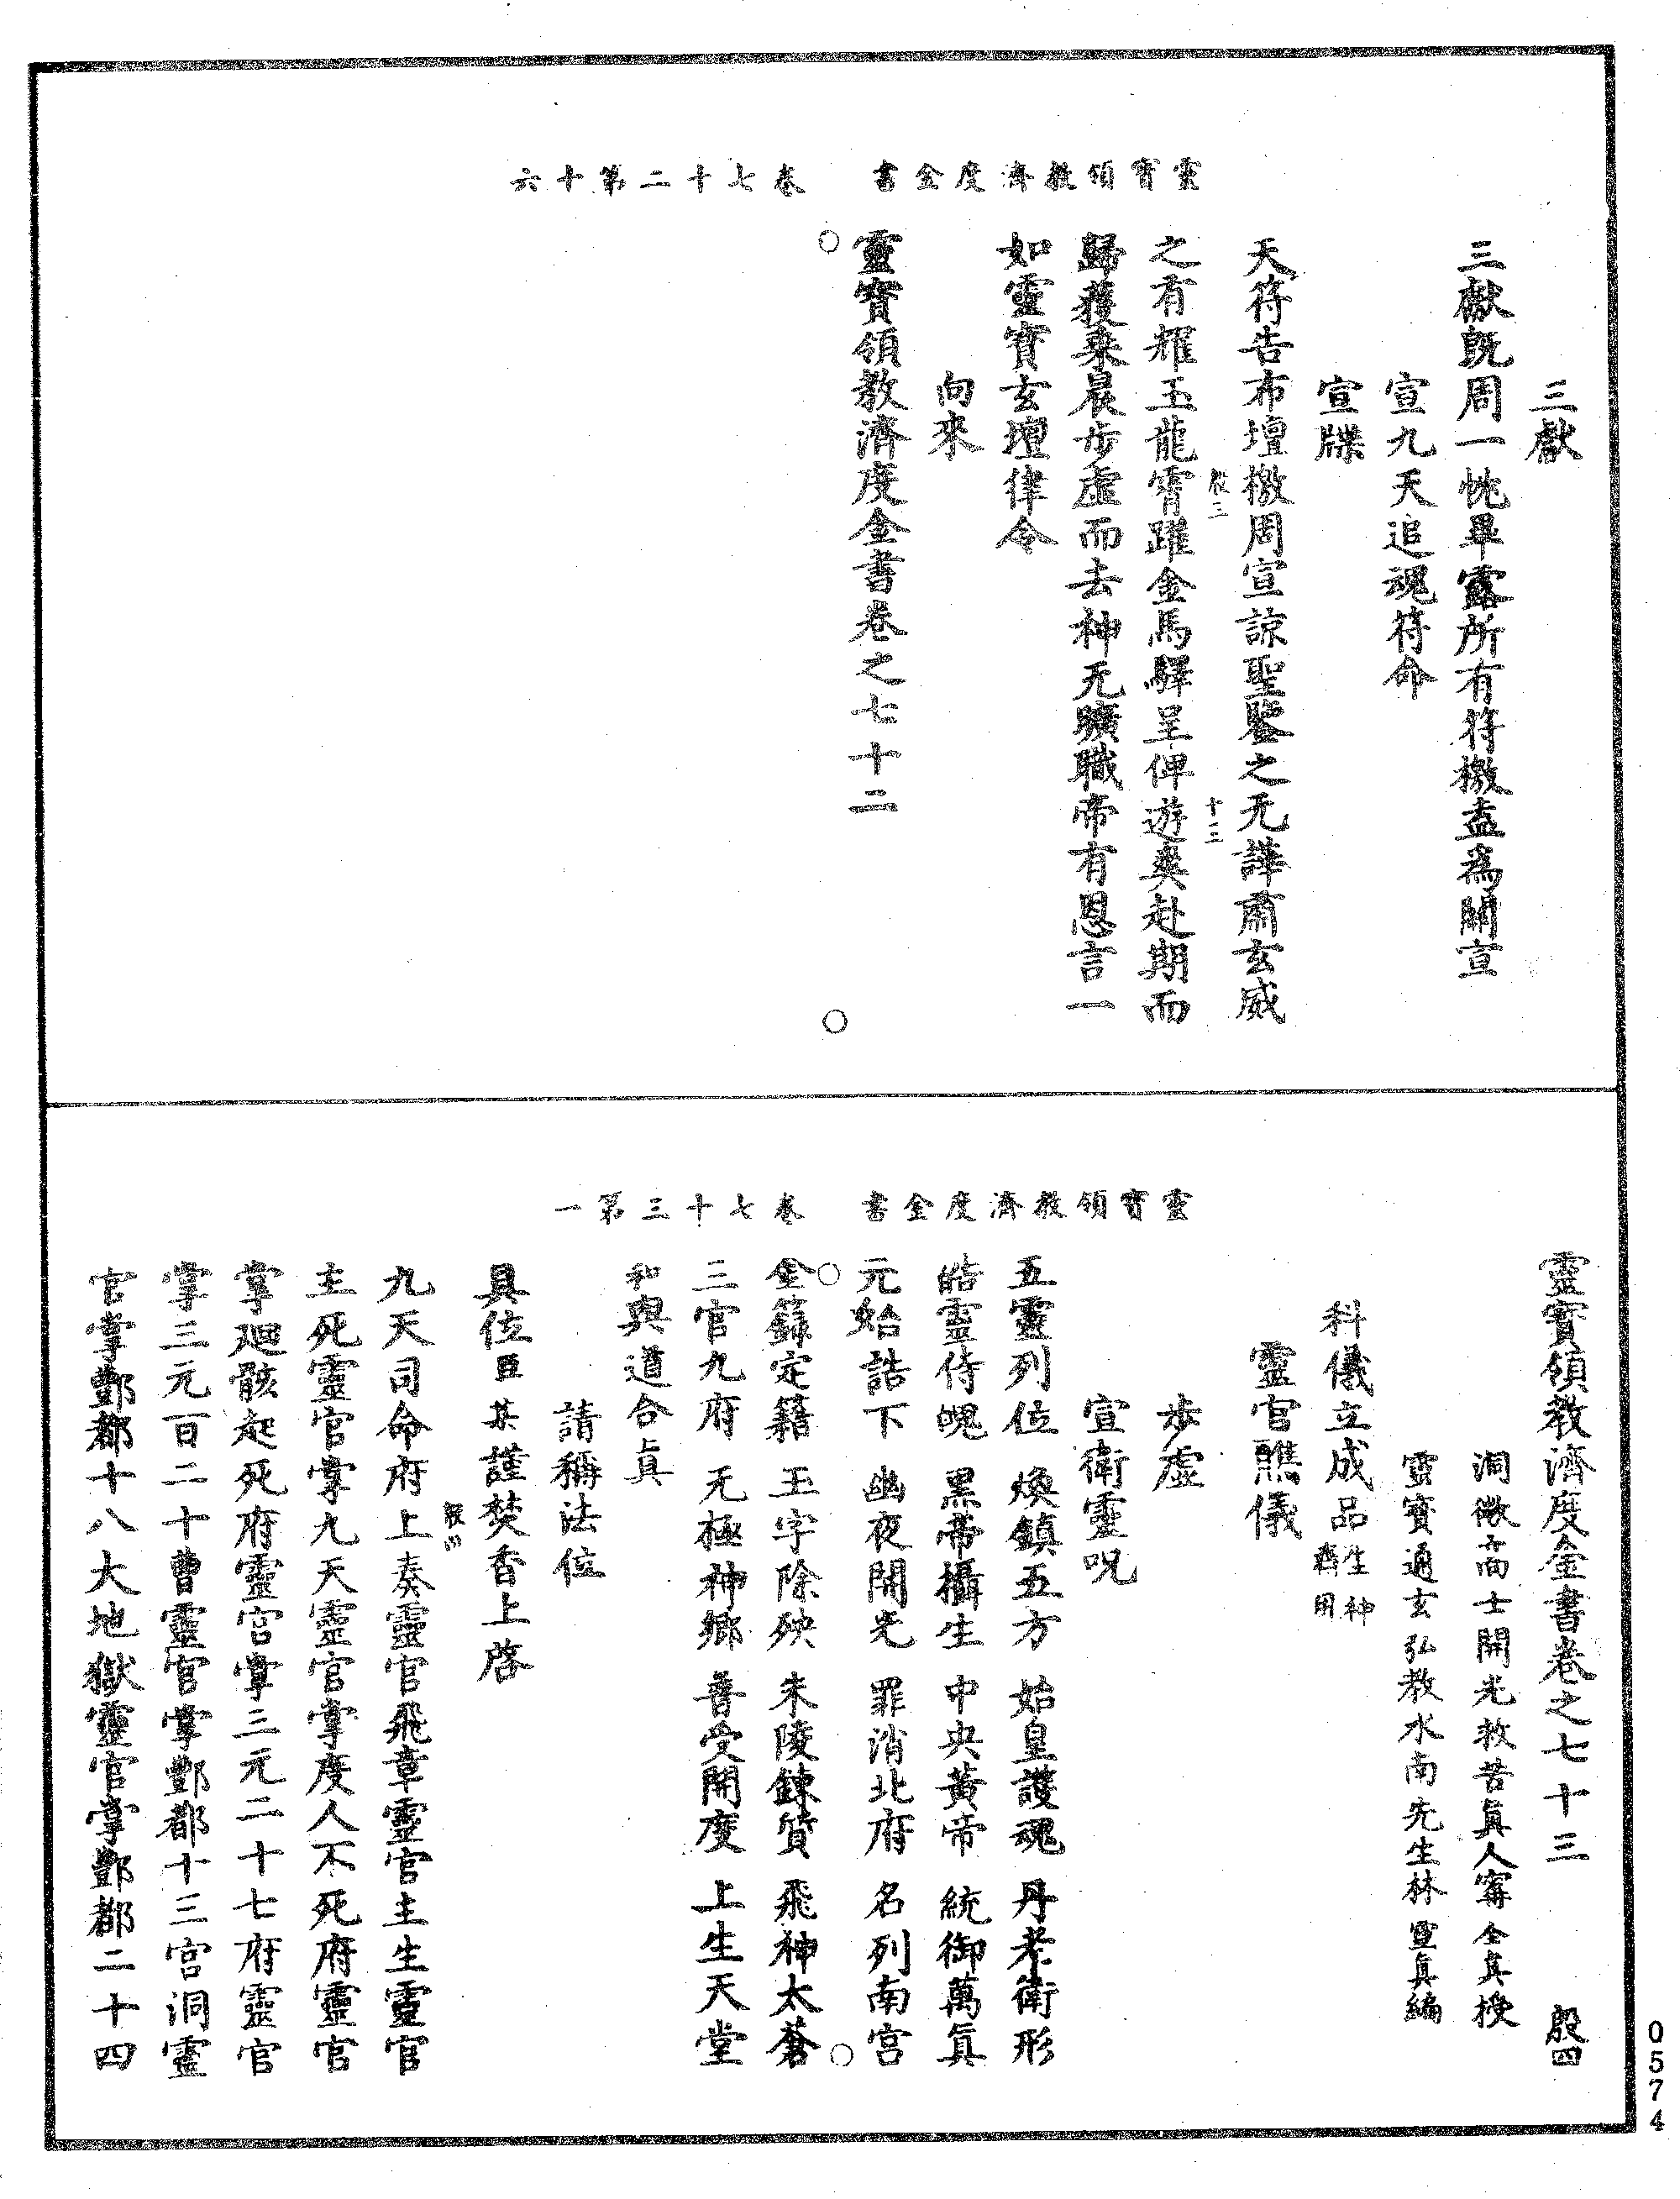 靈寶領教濟度金書　卷七十二第十六
三獻
三獻既周一忱畢露所有符檄盍爲開宣
宣九天追魂符命
宣牒
天符告布壇檄周宣諒聖鑒之无譁肅玄威
殷三　十三
之有耀玉龍霄躍金馬驛呈俾遊爽赴期而
歸獲乘晨步虛而去神无曠職帝有恩言一
如靈寶玄壇律令
向來
靈寶領教濟度金書卷之七十二
靈寶領教濟度金書　卷七十三第一
靈寶領教濟度金書卷之七十三　殷四
洞微高士開光救苦眞人甯全眞授
靈寶通玄弘教水南先生林靈眞編
科儀立成品生神齋用
靈官醮儀
步虛
宣衛靈呪
五靈列位　煥鎮五方　始皇護魂　丹老衛形
皓靈侍魄　黑帝攝生　中央黃帝　統御萬眞
元始誥下　幽夜開光　罪消北府　名列南宮
金籙定籍　玉字除殃　朱陵鍊質　飛神太蒼
三官九府　无極神鄉　普受開度　上生天堂
和與道合眞
請稱法位
具位臣某謹焚香上啓
殷四
九天司命府上奏靈官飛章靈官主生靈官
主死靈官掌九天靈官掌度人不死府靈官
掌廻骸起死府靈官掌三元二十七府靈官
掌三元百二十曹靈官掌酆都十三宮洞靈
官掌酆都十八大地獄靈官掌酆都二十四
0574